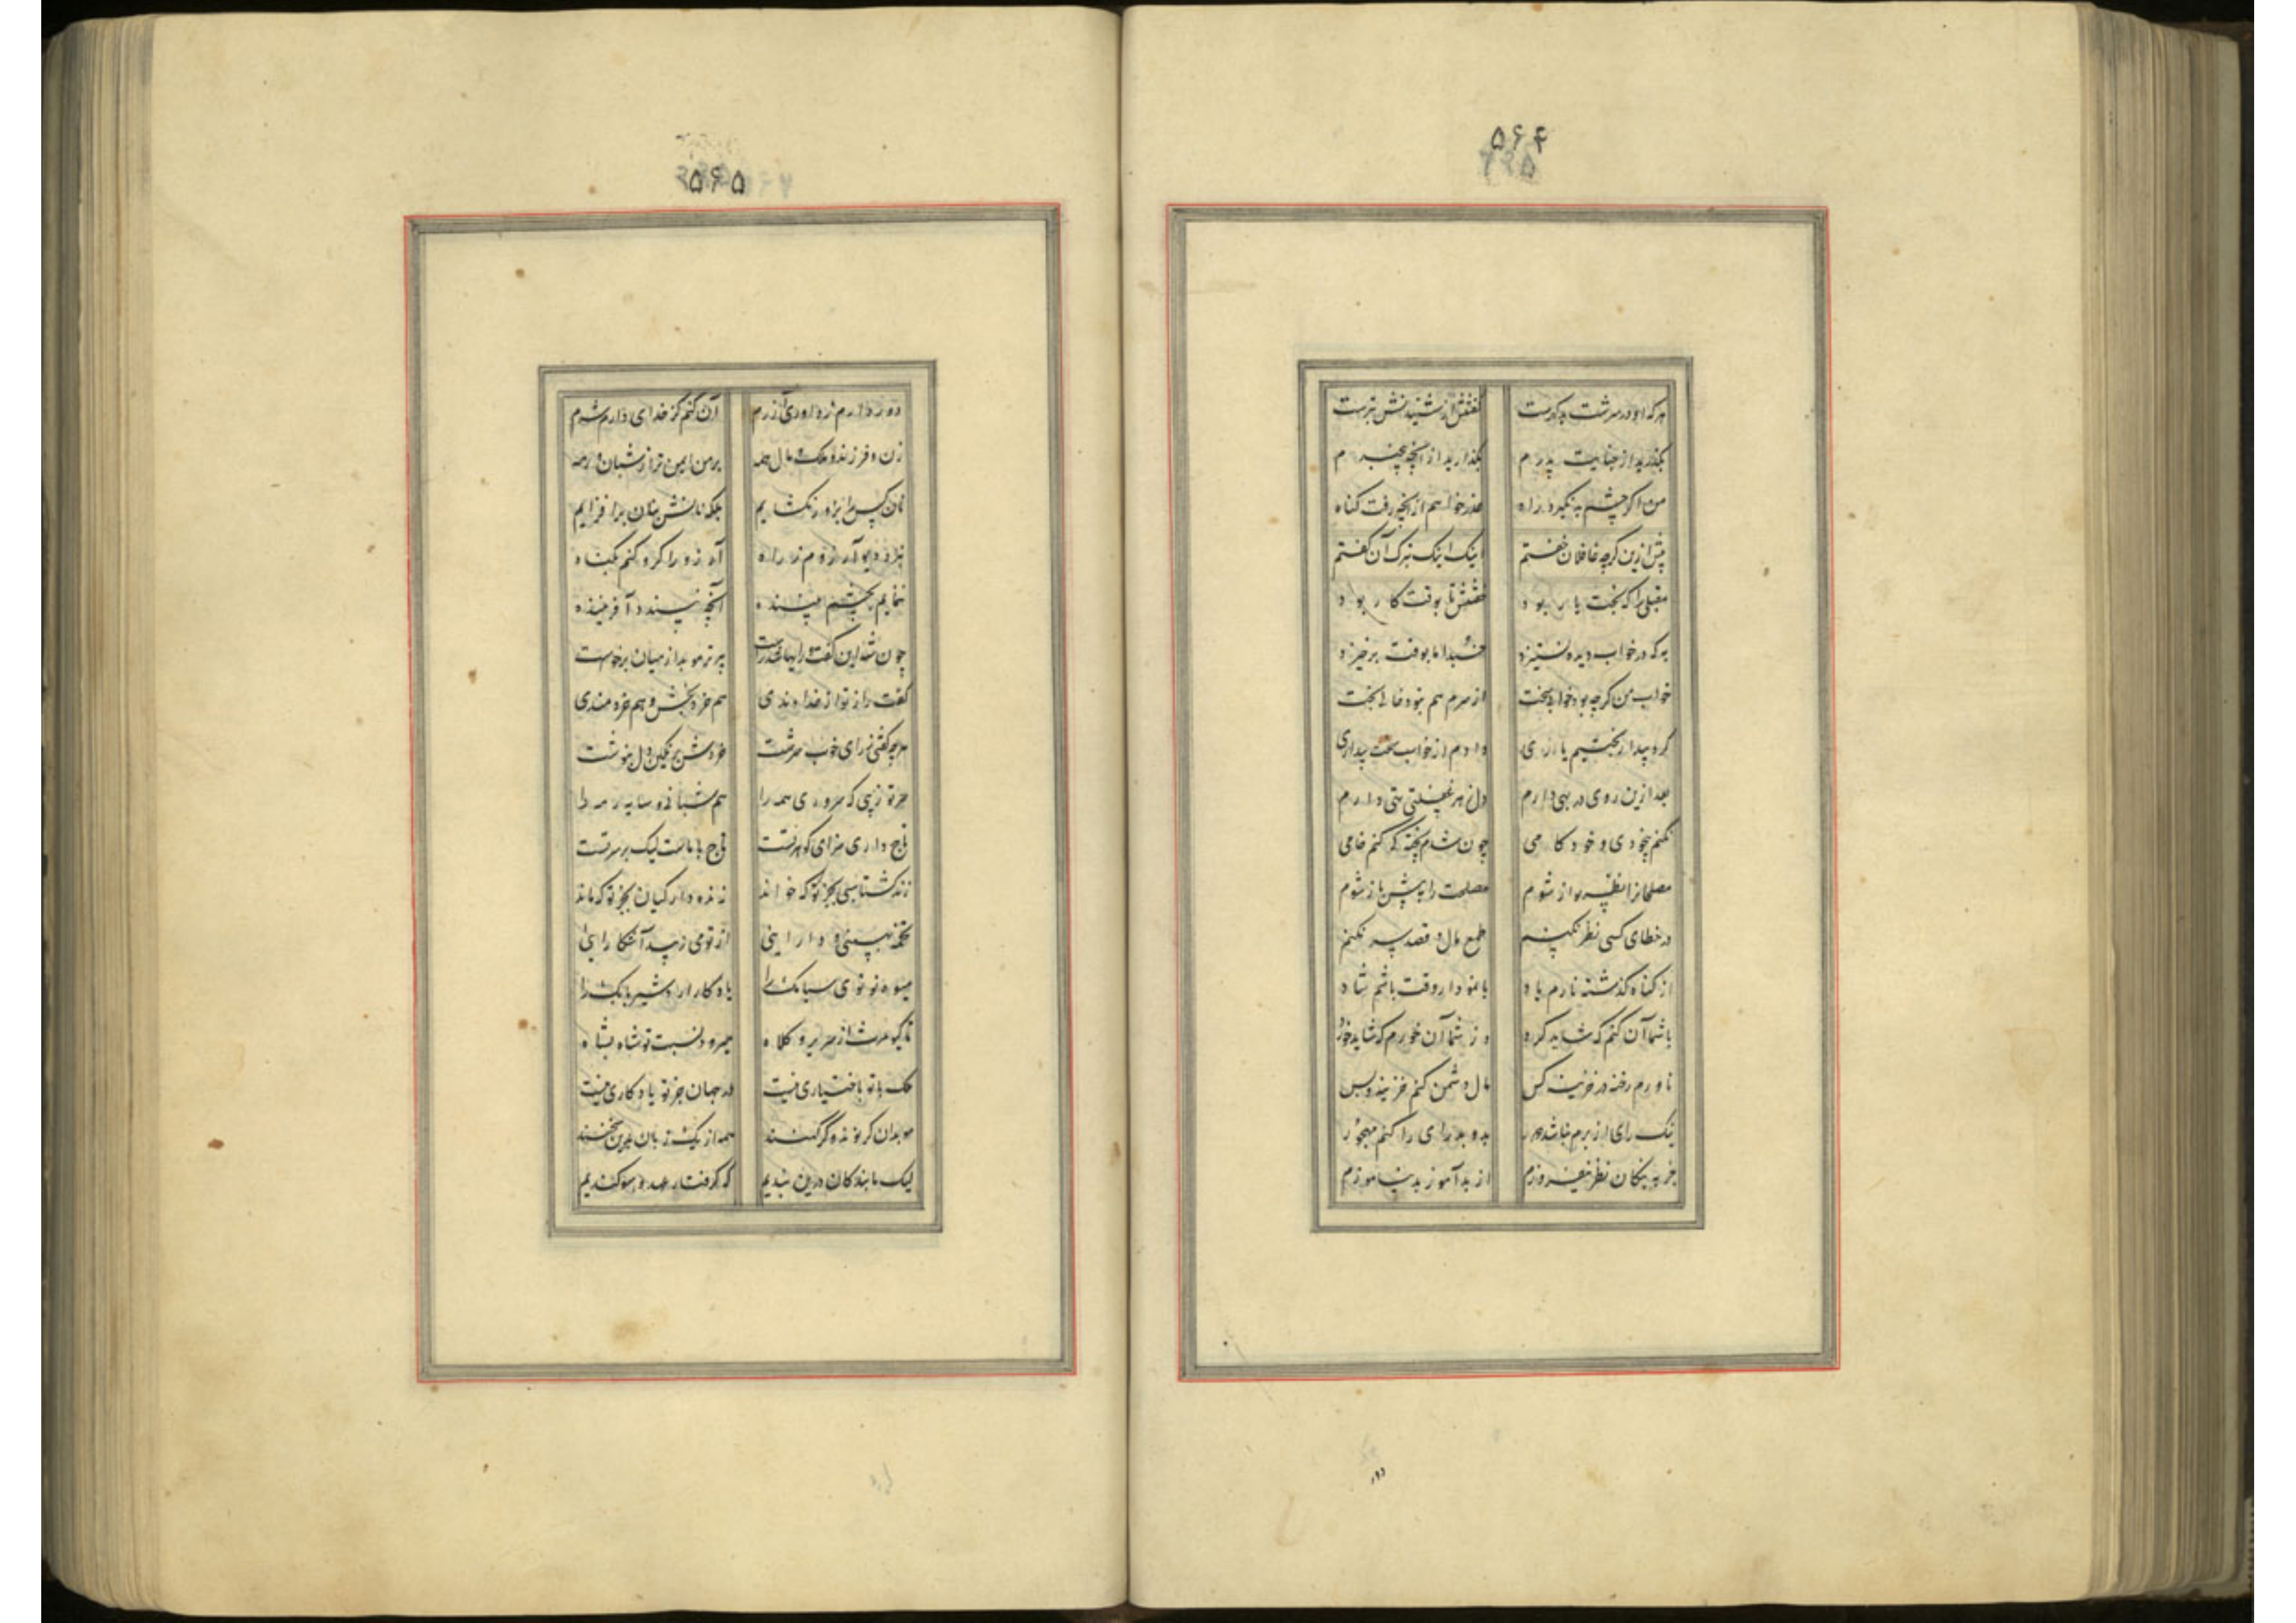 ۵۶۴
هرکه او در سرشت بدکهرست گفتنش از شنیدنش بترست
بکذرید از جنایت پدرم بکذارید از آنچه بیخبرم
من اکر چشم بد نکیرد راه عذر خواهم از آنچه رفت کناه
پیش ازین کرچه غافلان خفتم اینک اینک بترک آن کفتم
مقبلی را که بخت یار بود خفتنش تا بوقت کار بود
به که در خواب دیده نستیزد خسبد اما بوقت برخیزد
خواب من کرچه بود خوابی سخت از سرم هم نبود خالی بخت
کرد بیدار بختیم یاری دادم از خواب سخت بیداری
بعد ازین روی در بهی دارم دل ز هر غفلتی تهی دارم
نکنم بیخودی و خودکامی چون شدم پخته کی کنم خامی
مصلحانرا نظر نواز شوم مصلحت را به پیش باز شوم
در خطای کسی نظر نکنم طمع مال و قصد سر نکنم
از کناه کذشته نارم یاد با نمودار وقت باشم شاد
با شما آن کنم که شاید کرد وز شما آن خورم که شاید خورد
ناورم رخنه در خزینه کس مال دشمن کنم خزینه و بس
نیک رای از برم نباشد دور بد و بد رای را کنم مهجور
جز به نیکان نظر نیفروزم از بد آموز بد نیاموزم
دور
۵۶۵
دور دارم ز داوری آزرم آن کنم کز خدای دارم شرم
زن و فرزند و ملک و مال همه بر من ایمن تر از شبان و رمه
نان کس را بزور نکشایم بلکه نانش بنان برافزایم
نبرد دیو آرزوم ز راه آرزو را کرو کنم بکناه
ننمایم بچشم بیننده آنچه نپسندد آفریننده
چون شه این کفت و رایها شد راست پیرتر موبد از میان برخاست
کفت را ز تو از خداوندی هم خردبخش و هم خردمندی
هرچه کفتی ز رای خوب سرشت خردش بر نکین دل بنوشت
سر تو زیبی که سروری همه را هم شبانی و سایه رمه را
تاج داری سزای کوهر تست تاج با ماست لیک بر سر تست
زند کشتاسبی بجز تو که خواند زنده دار کیان بجز تو که ماند
تخمه بهمنی و دارایی از تو می زیبد آشکارایی
میوه نو تویی سیامک را یادکار اردشیر بابک را
تا کیومرث از سریر و کلاه میرود نسبت تو شاه بشاه
ملک با تو باختیاری نیست در جهان جز تو یادکاری نیست
موبدان کر نو ند و کر کهنند همه از یک زبان برین سخنند
لیک ما بندکان درین بندیم که کرفتار عهد و سوکندیم